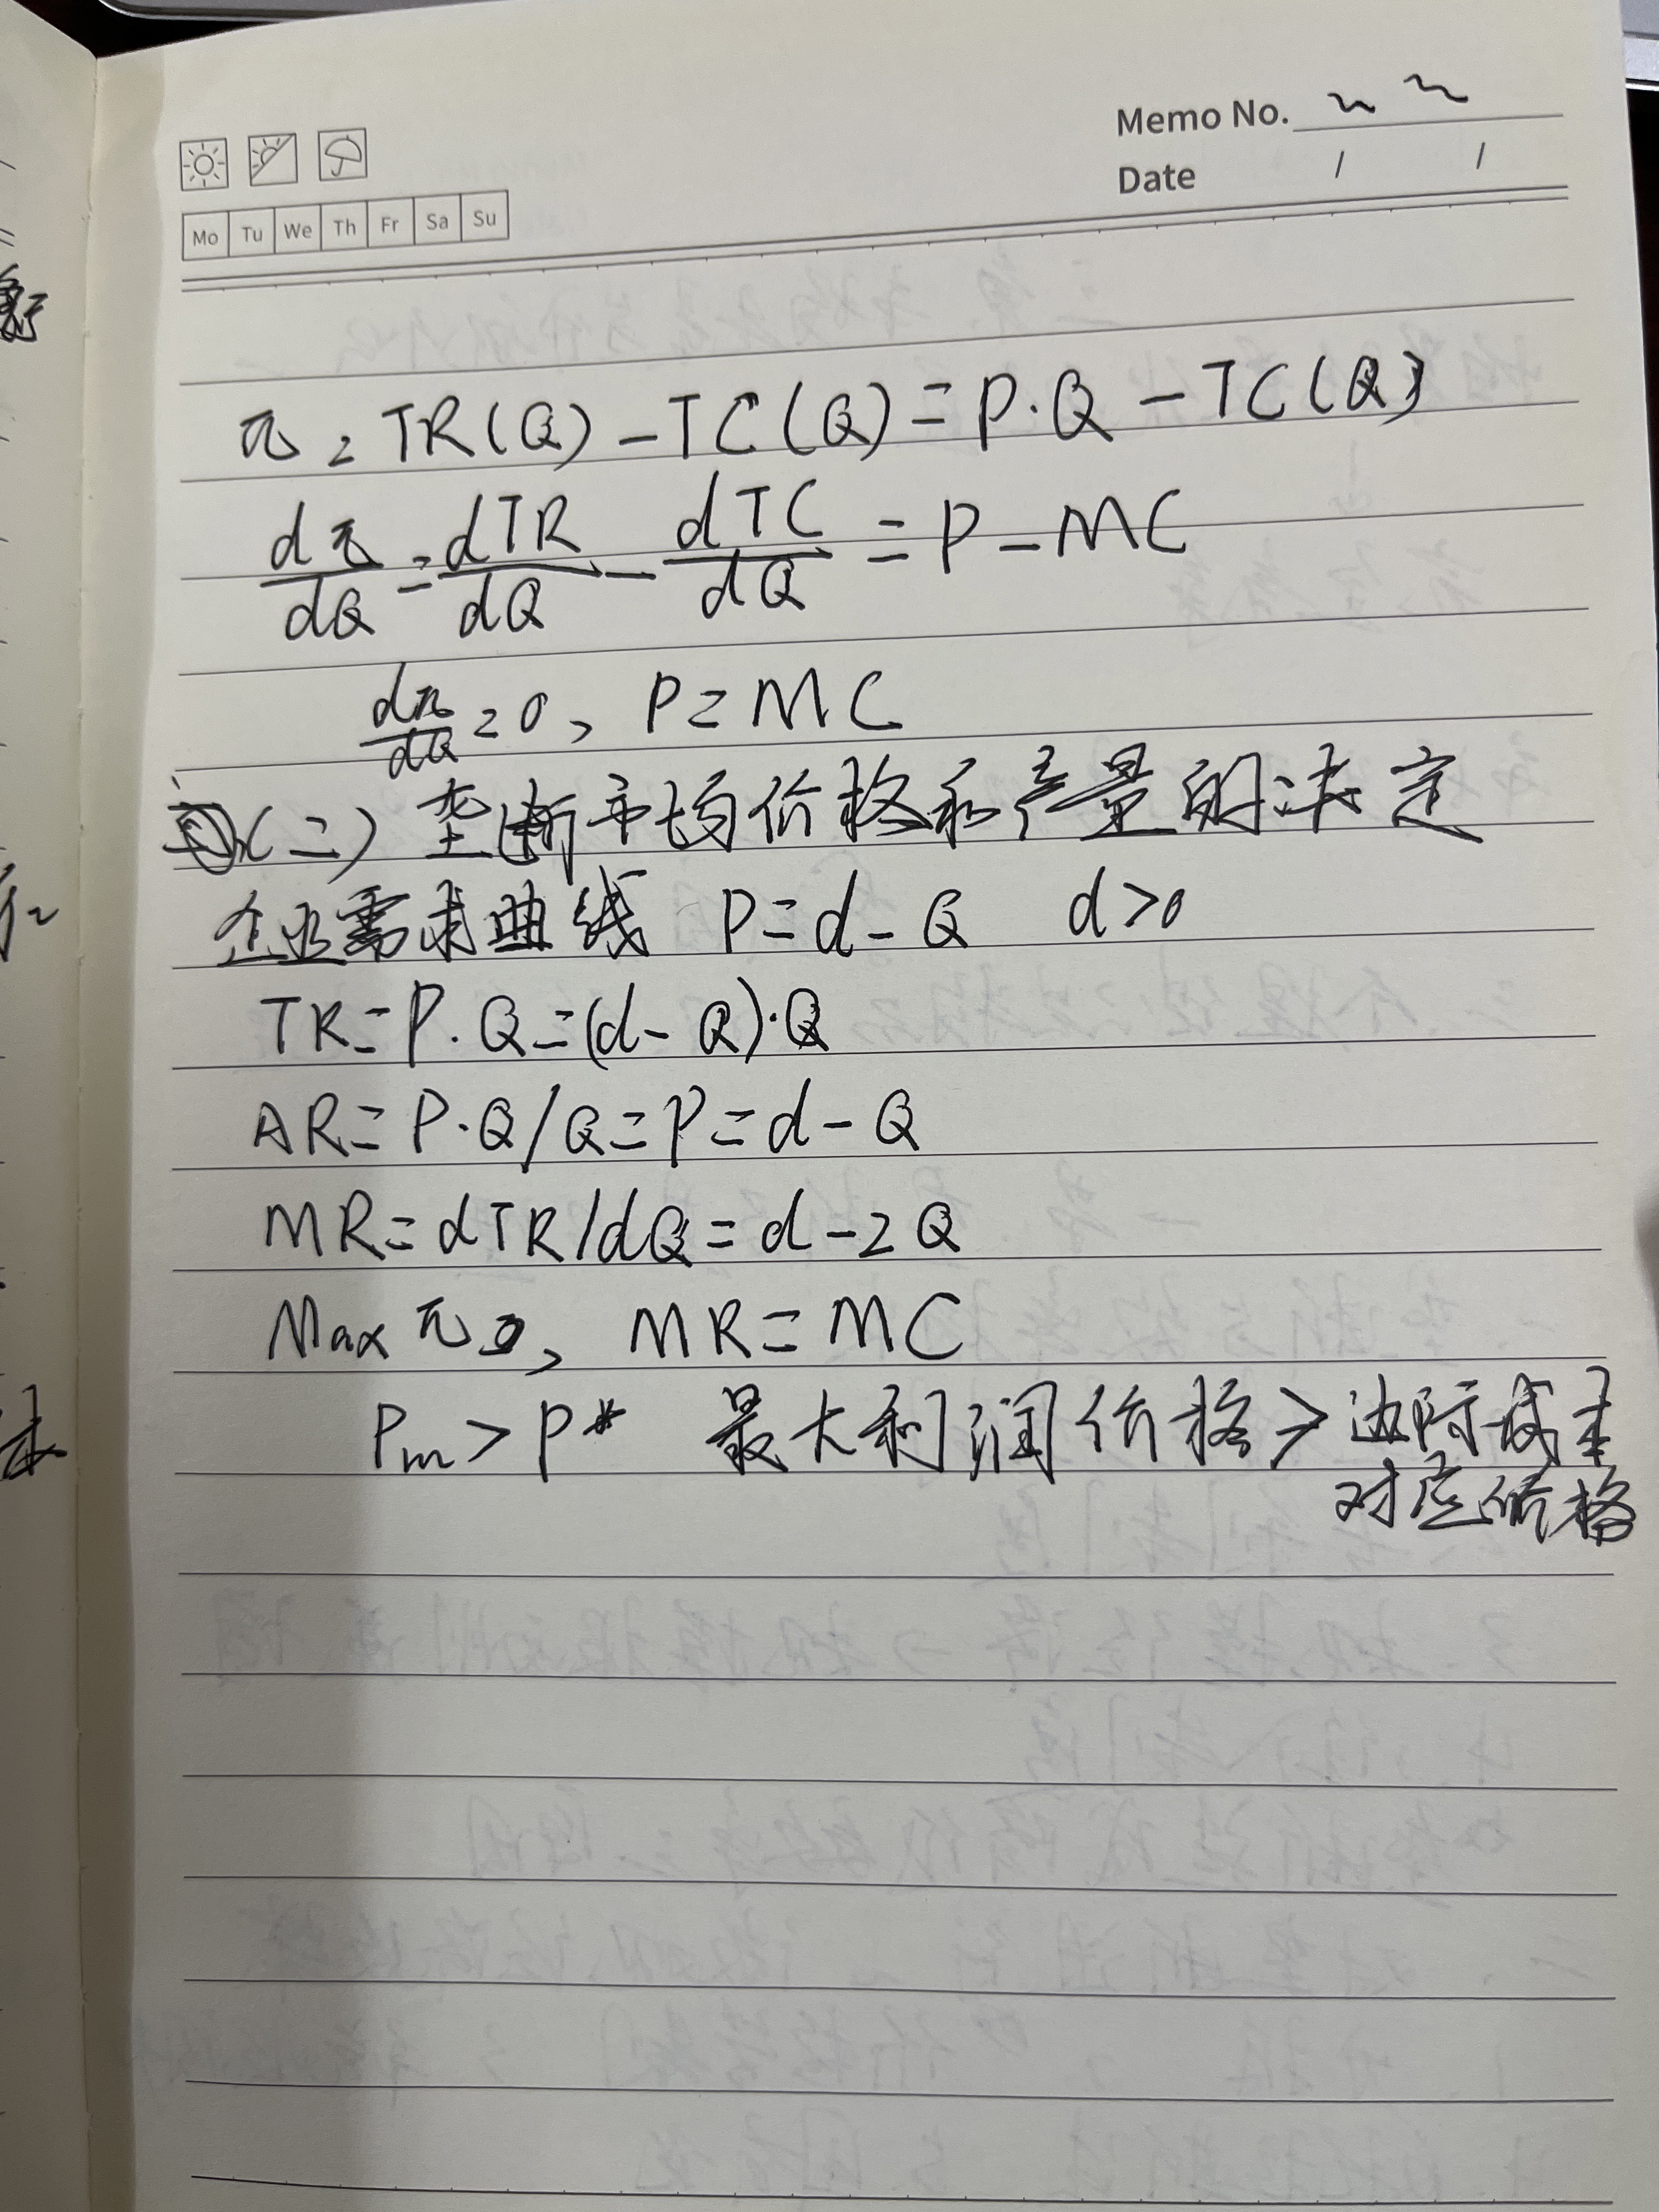 Memo No.
Date / /
Mo Tu We Th Fr Sa Su
π = TR(Q) - TC(Q) = P·Q - TC(Q)
dπ/dQ = dTR/dQ - dTC/dQ = P - MC
dπ/dQ = 0, P = MC
(二) 垄断市均价格和产量的决定
企业需求曲线 P = d - Q d > 0
TR = P·Q = (d - Q)·Q
AR = P·Q/Q = P = d - Q
MR = dTR/dQ = d - 2Q
Max π, MR = MC
Pm > P* 最大利润价格 > 边际成本
对应价格